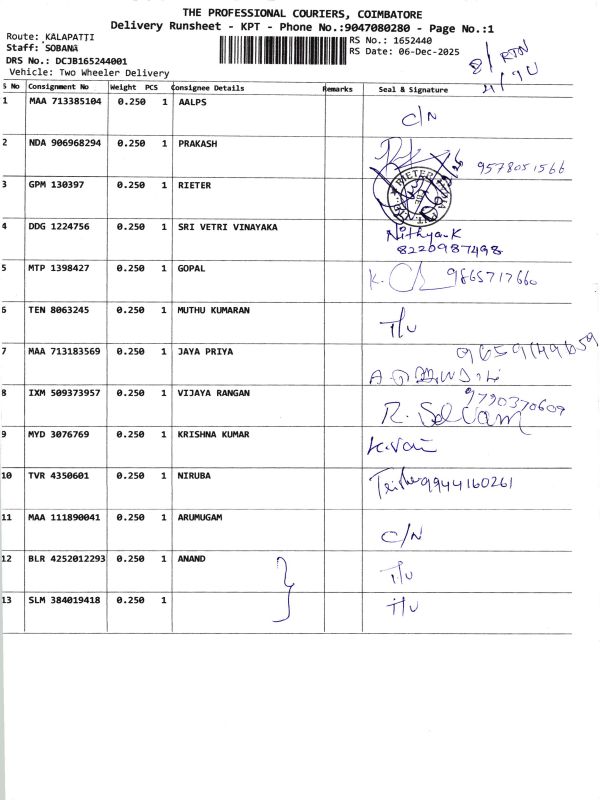 THE PROFESSIONAL COURIERS, COIMBATORE
Delivery Runsheet - KPT - Phone No.:9047080280 - Page No.:1
Route: KALAPATTI
RS No.: 1652440
Staff: SOBANA
RS Date: 06-Dec-2025
DRS No.: DCJB165244001
Vehicle: Two Wheeler Delivery
8/ RTN
4/90
S No Consignment No Weight PCS Consignee Details Remarks Seal & Signature
1 MAA 713385104 0.250 1 AALPS C/N
2 NDA 906968294 0.250 1 PRAKASH 9578051566
3 GPM 130397 0.250 1 RIETER RIETER
4 DDG 1224756 0.250 1 SRI VETRI VINAYAKA Nithya.K
8220987498
5 MTP 1398427 0.250 1 GOPAL K. 9865717660
6 TEN 8063245 0.250 1 MUTHU KUMARAN T/U
7 MAA 713183569 0.250 1 JAYA PRIYA 9659149659
8 IXM 509373957 0.250 1 VIJAYA RANGAN 9790370609
R. Selvam
9 MYD 3076769 0.250 1 KRISHNA KUMAR
10 TVR 4350601 0.250 1 NIRUBA 9944160261
11 MAA 111890041 0.250 1 ARUMUGAM C/N
12 BLR 4252012293 0.250 1 ANAND T/U
13 SLM 384019418 0.250 1 T/U